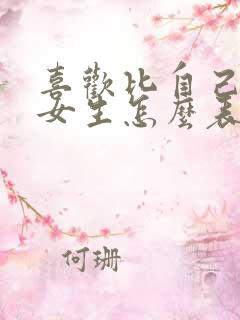 喜歡比自己
女生怎麼表
何珊